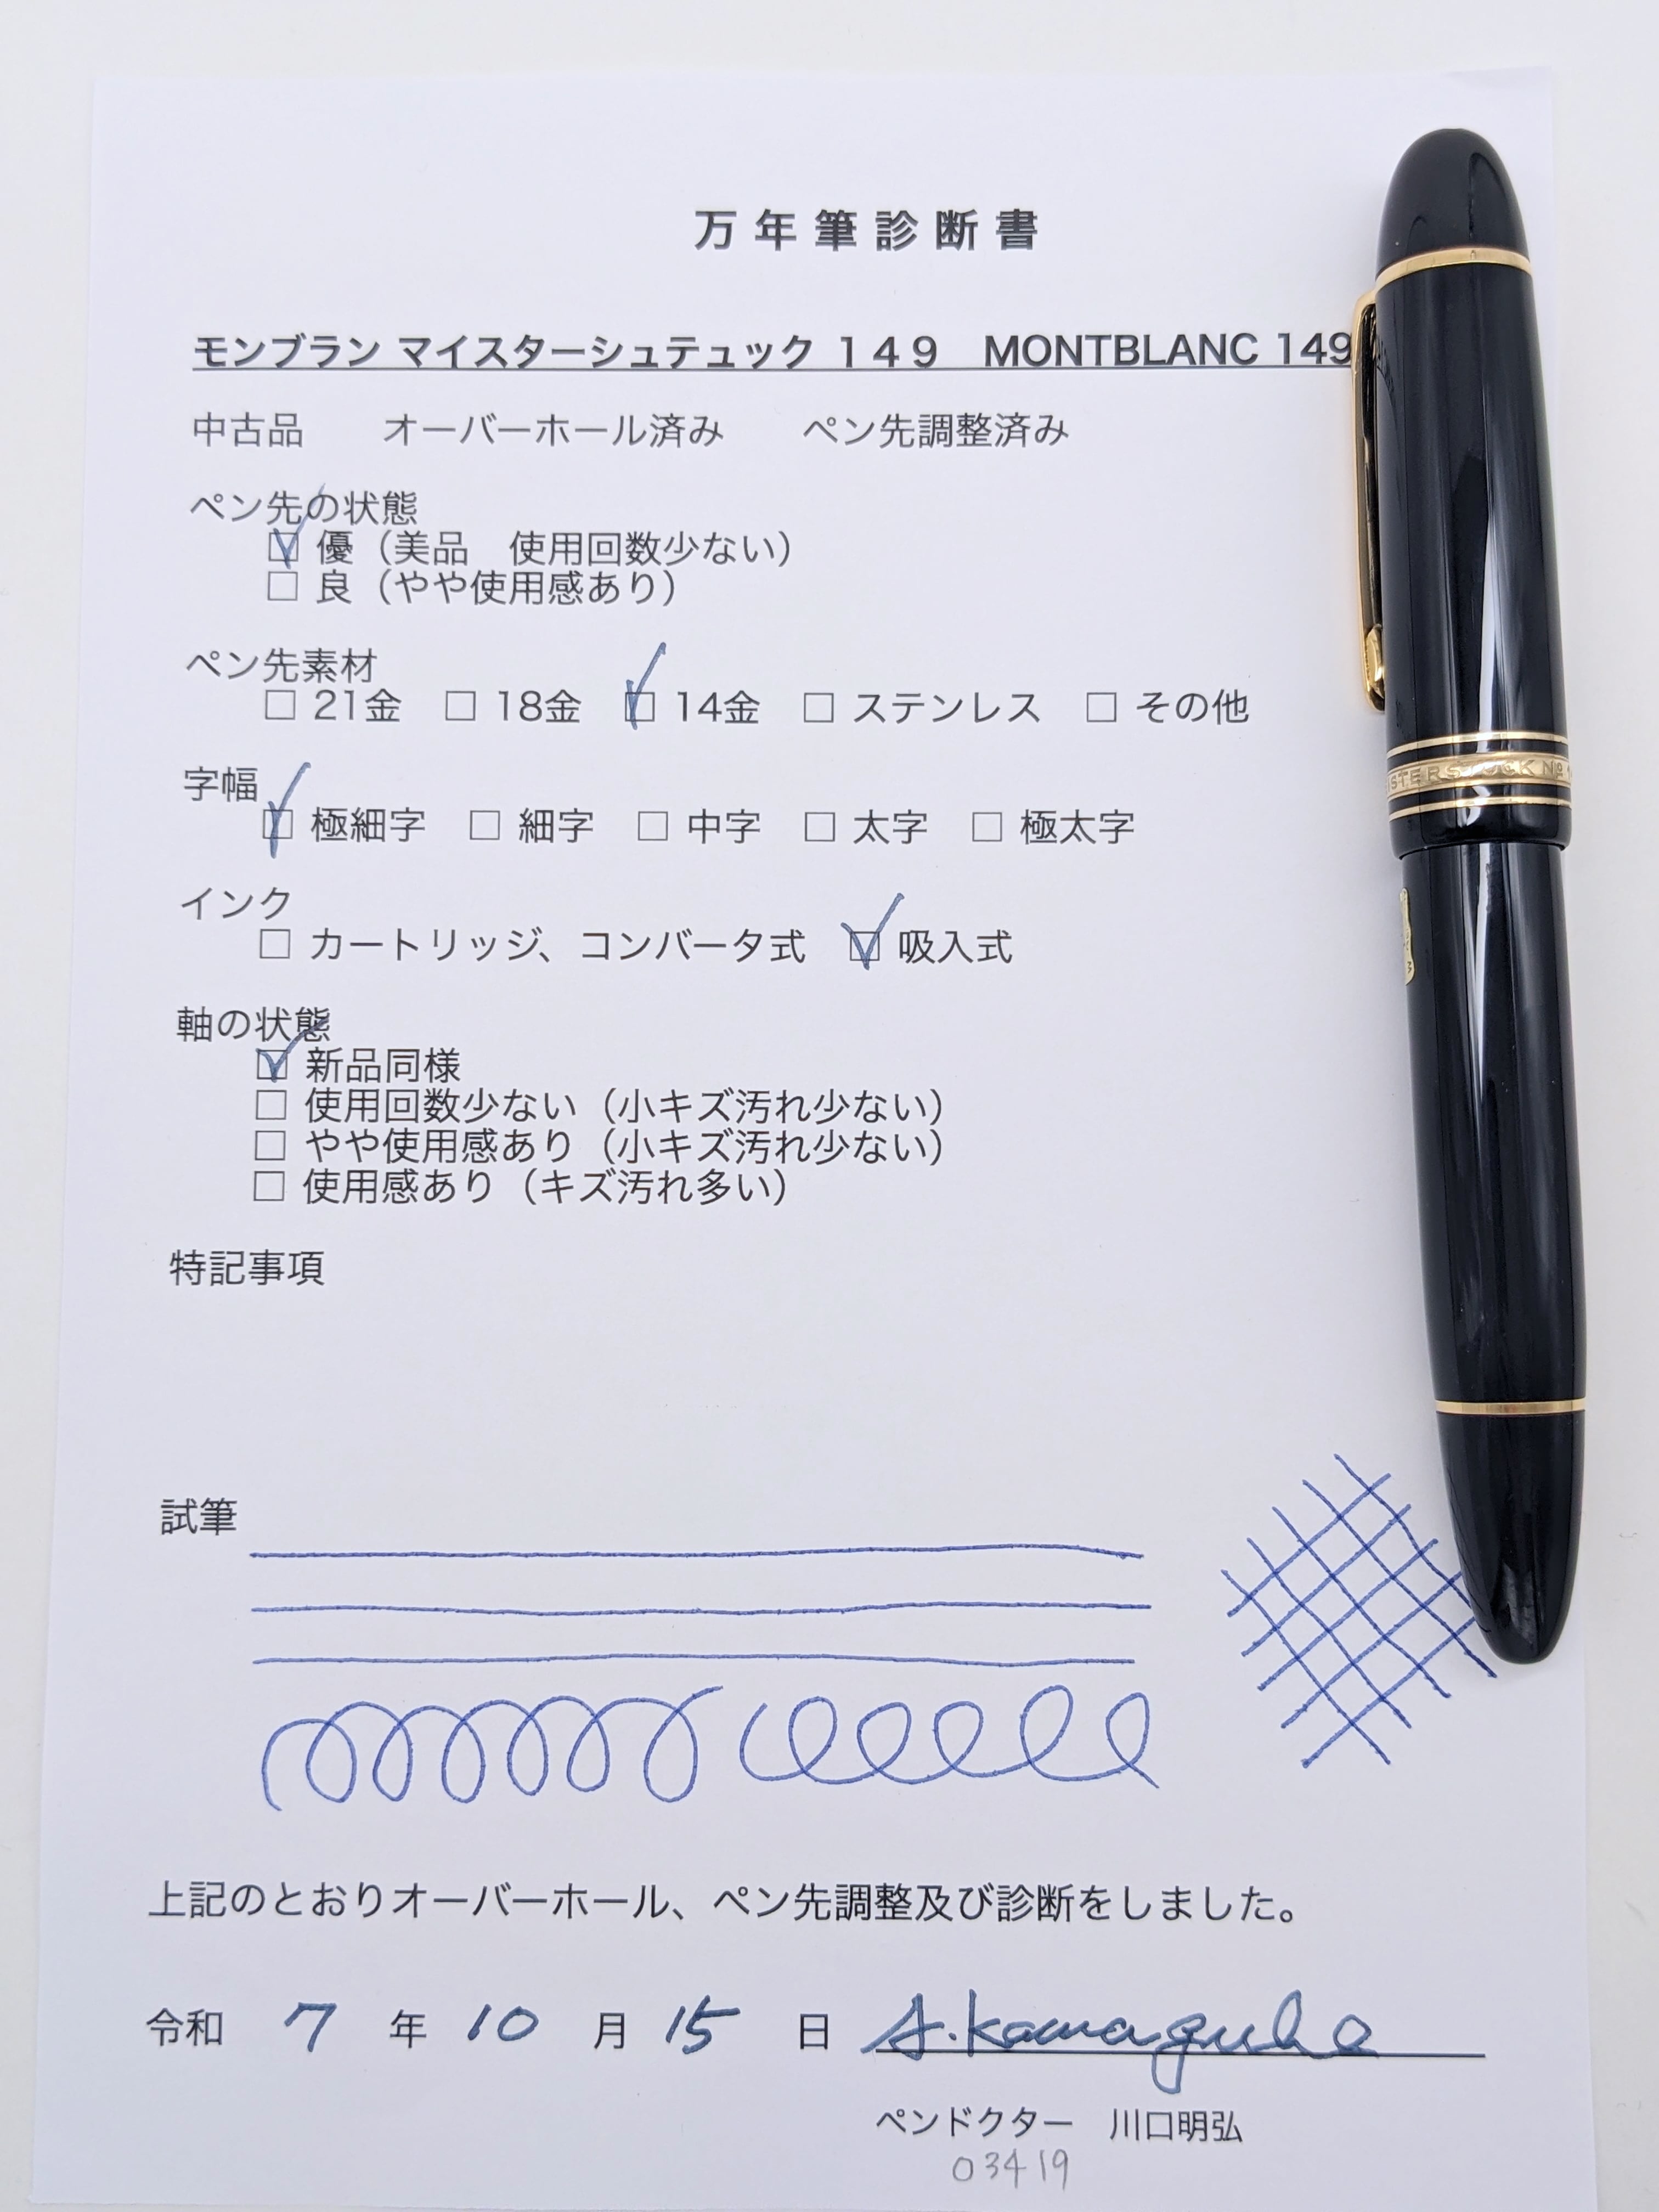 万年筆診断書
モンブラン マイスターシュテュック １４９　MONTBLANC 149
中古品　　オーバーホール済み　　ペン先調整済み
ペン先の状態
☑ 優（美品　使用回数少ない）
□ 良（やや使用感あり）
ペン先素材
□ 21金　□ 18金　☑ 14金　□ ステンレス　□ その他
字幅
☑ 極細字　□ 細字　□ 中字　□ 太字　□ 極太字
インク
□ カートリッジ、コンバータ式　☑ 吸入式
軸の状態
☑ 新品同様
□ 使用回数少ない（小キズ汚れ少ない）
□ やや使用感あり（小キズ汚れ少ない）
□ 使用感あり（キズ汚れ多い）
特記事項
試筆
上記のとおりオーバーホール、ペン先調整及び診断をしました。
令和 7 年 10 月 15 日 A.Kawaguchi
ペンドクター　川口明弘
03419
STERSTÜCK Nº